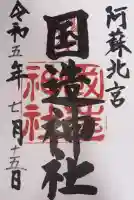 阿蘇北宮
国造神社
令和五年七月十五日